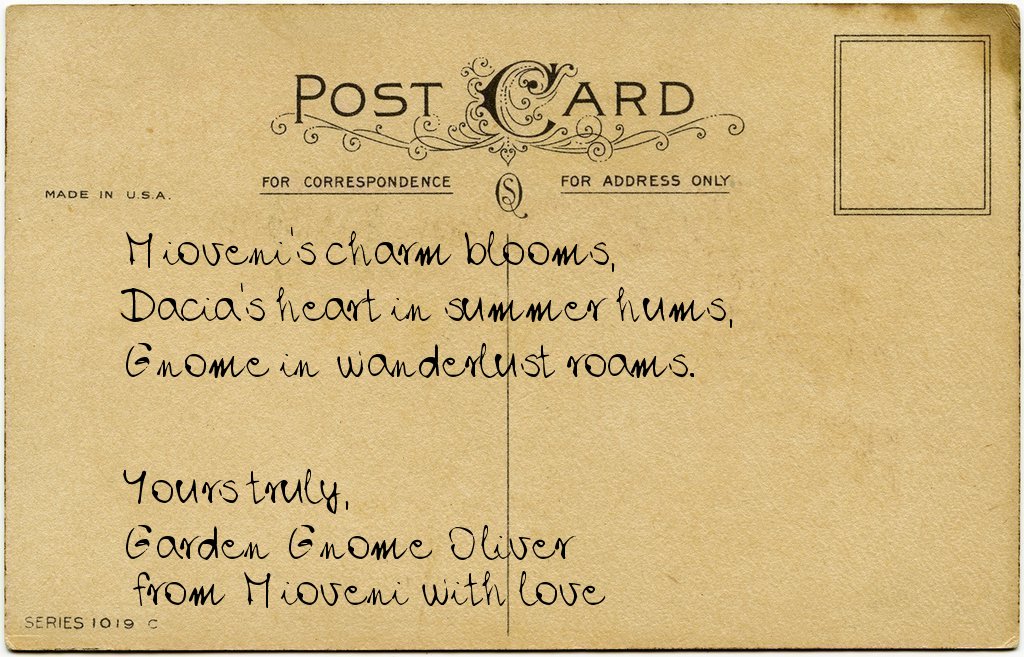 POST CARD
FOR CORRESPONDENCE
FOR ADDRESS ONLY
MADE IN U.S.A.
Mioveni's charm blooms,
Dacia's heart in summer hums,
Gnome in wanderlust roams.
Yours truly,
Garden Gnome Oliver
from Mioveni with love
SERIES 1019 C